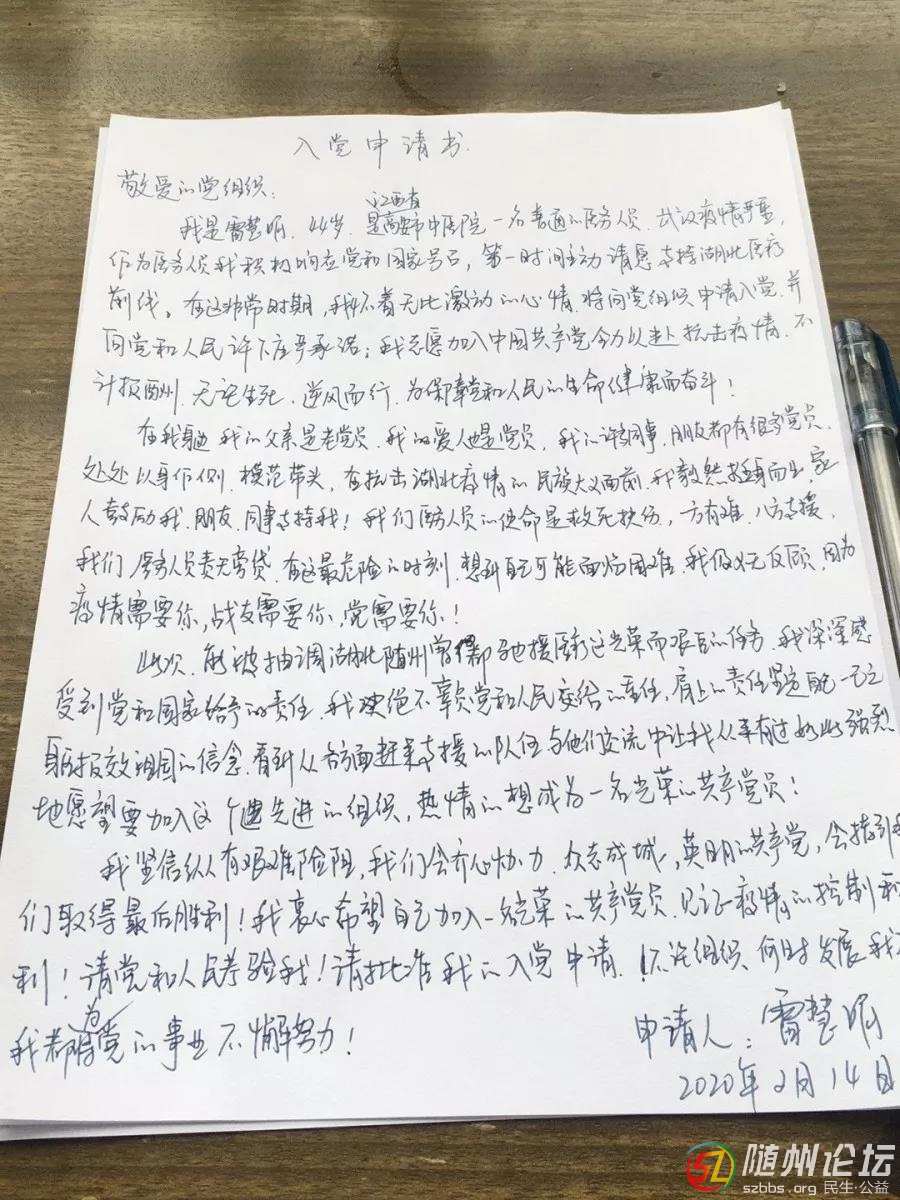 入党申请书.
敬爱的党组织:
江西省
我是雷慧昵、44岁、是高安市中医院一名普通的医务人员、武汉疫情严重,
作为医务人员我积极响应党和国家号召,第一时间主动请愿支持湖北医疗
前线。在这非常时期,我怀着无比激动的心情、将向党组织申请入党、并
向党和人民许下庄严承诺:我志愿加入中国共产党全力以赴抗击疫情、不
计报酬、无论生死、逆风而行、为保障党和人民的生命健康而奋斗!
在我身边 我的父亲是老党员、我的爱人也是党员、我的许多同事、朋友都有很多党员、
处处以身作则、模范带头,在抗击湖北疫情的民族大义面前、我毅然挺身而出,家
人鼓励我、朋友、同事支持我!我们医务人员的使命是救死扶伤,一方有难、八方支援、
我们医务人员责无旁贷、在这最危险的时刻、想到自己可能面临困难、我仍义无反顾、因为
疫情需要你,战友需要你、党需要你!
此次、能被抽调湖北随州曾都 支援医疗这光荣而艰巨的任务、我深深感
受到党和国家给予的责任、我决绝不辜负党和人民交给的重任,肩上的责任
报效祖国的信念、看到从各方面赶来支援的队伍与他们交流中让我从未有过如此强烈
地愿望要加入这个 先进的组织,热情的想成为一名光荣的共产党员!
我坚信纵有艰难险阻,我们会齐心协力、众志成城,英明的共产党,会指引我
们取得最后胜利!我衷心希望自己加入一名光荣的共产党员、见证疫情的控制和
利!请党和人民考验我!请批准我的入党申请、不论组织何时发展我
为
我都 党的事业不懈努力!
申请人:雷慧昵
2020年2月14日
随州论坛
szbbs.org 民生·公益